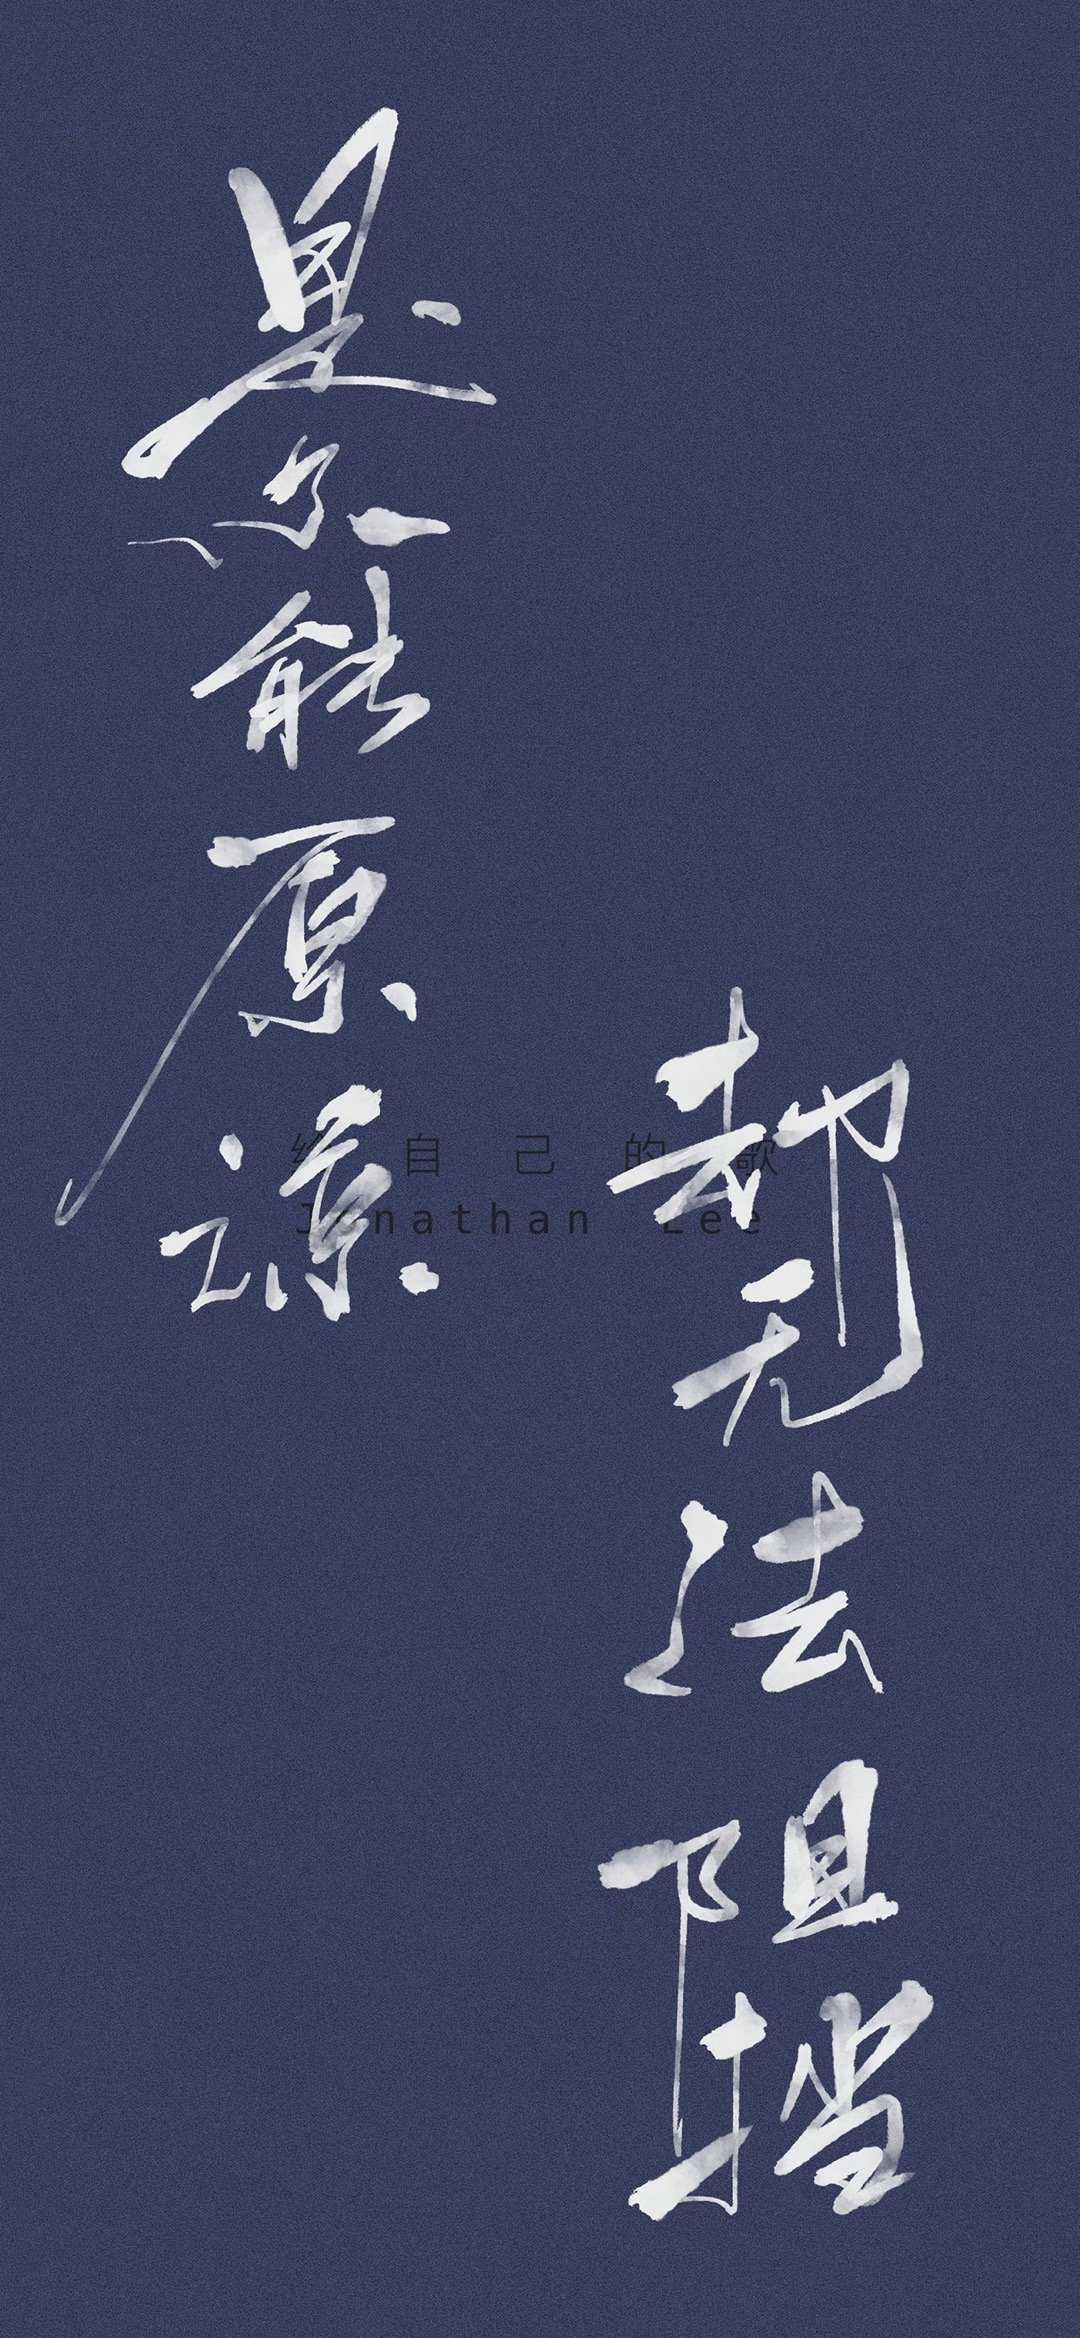 是不能原谅
却无法阻挡
给自己的歌
Jonathan Lee